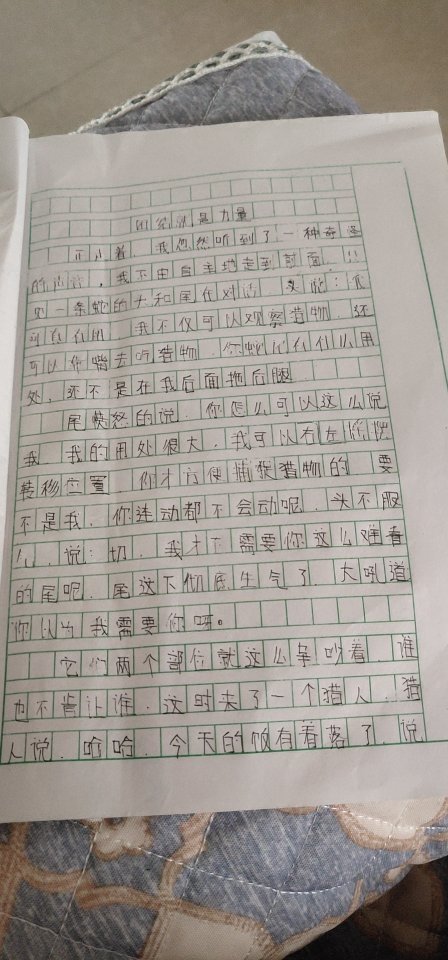 团结就是力量
正走着，我忽然听到了一种奇怪
的，我不由自主地走到前面，只
见一条蛇的头和尾在对话，头说：
，我不仅可以观察猎物，还
可以用嘴去吃猎物，你什么用
处，还不是在我后面拖后腿
尾愤怒的说，你怎么可以这么说
我，我的用处很大，我可以右左
转移位置，你才方便捕捉猎物的，要
不是我，你连动都不会动呢，头不服
气，说：切，我才不需要你这么难看
的尾呢，尾这下彻底生气了，大吼道
你以为我需要你呀。
它们两个部位就这么争吵着，谁
也不肯让谁，这时来了一个猎人，猎
人说，哈哈，今天的饭有着落了，说